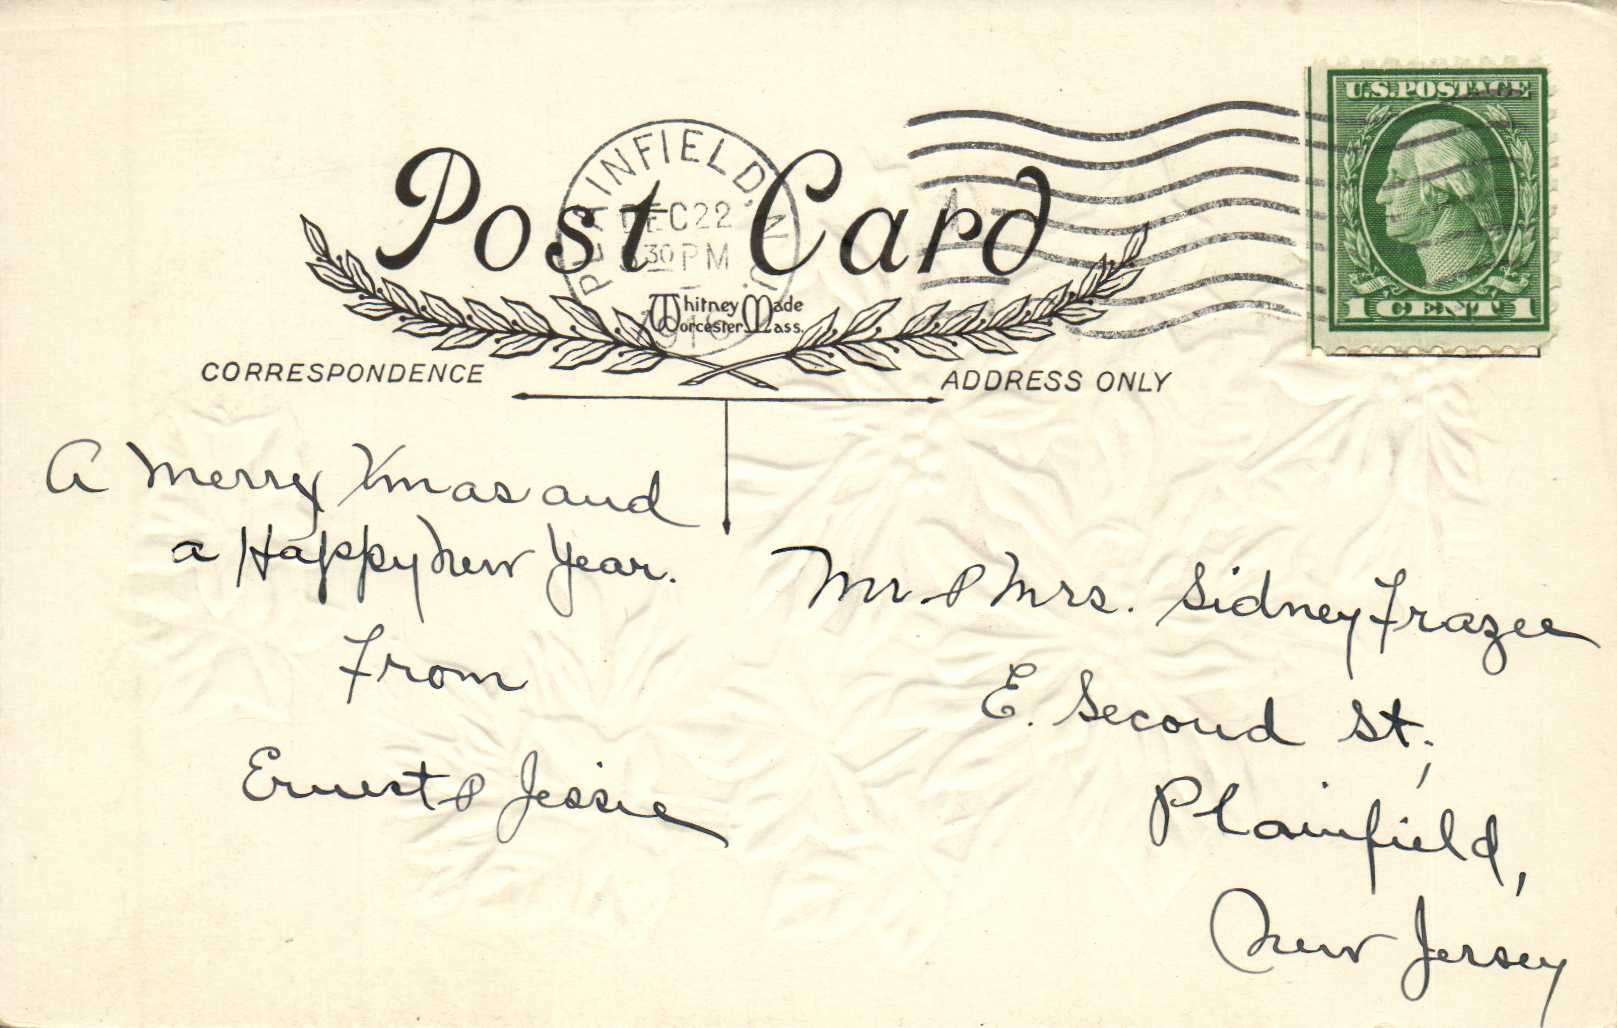 Post Card
PLAINFIELD, N.J.
DEC 22
30 PM
Whitney Made
Worcester Mass.
U.S. POSTAGE
1 CENT 1
CORRESPONDENCE
ADDRESS ONLY
A Merry Xmas and
a Happy New Year.
From
Ernest & Jessie
Mr & Mrs. Sidney Frazee
E. Second St.,
Plainfield,
New Jersey